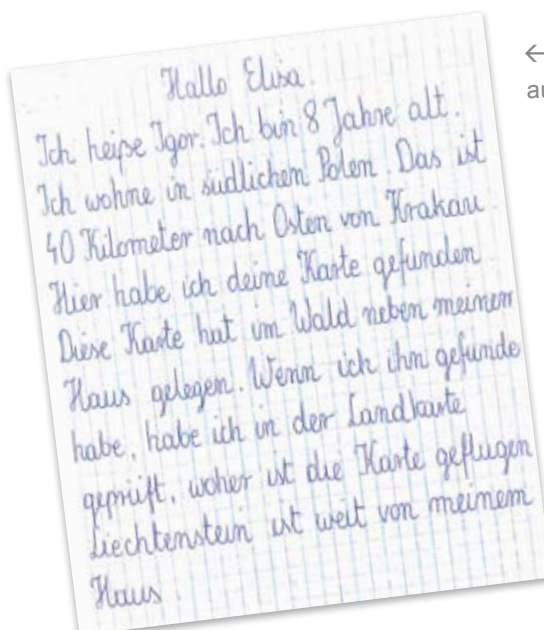 Hallo Elisa.
Ich heiße Igor. Ich bin 8 Jahre alt.
Ich wohne in südlichen Polen. Das ist
40 Kilometer nach Osten von Krakau.
Hier habe ich deine Karte gefunden.
Diese Karte hat im Wald neben meinem
Haus gelegen. Wenn ich ihn gefunde
habe, habe ich in der Landkarte
geprüft, woher ist die Karte geflugen
Liechtenstein ist weit von meinem
Haus.
←
au